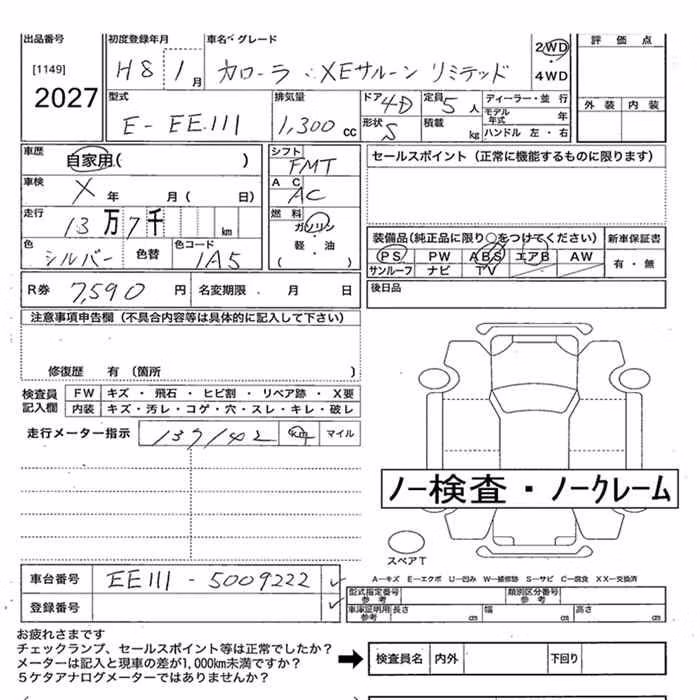 出品番号 初度登録年月 車名・グレード 評価点
[1149] H8 1月 カローラ XEサルーン リミテッド 2WD
2027 4WD
型式 排気量 ドア 4D 定員 5人 ディーラー・並行 外装 内装
E-EE111 1,300cc 形状 S 積載 kg モデル年式 年
ハンドル 左・右
車歴 自家用( ) シフト FMT セールスポイント(正常に機能するものに限ります)
車検 X 年 月( 日) AC AC
走行 13万7千 km 燃料 ガソリン 装備品(純正品に限り○をつけてください) 新車保証書
色 シルバー 色替 色コード 1A5 軽・油 PS PW ABS エアB AW 有・無
( ) サンルーフ ナビ TV
R券 7,590円 名変期限 月 日 後日品
注意事項申告欄(不具合内容等は具体的に記入して下さい)
修復歴 有(箇所 )
検査員 FW キズ・飛石・ヒビ割・リペア跡・X要
記入欄 内装 キズ・汚レ・コゲ・穴・スレ・キレ・破レ
走行メーター指示 137142 km マイル
ノー検査・ノークレーム
スペアT
車台番号 EE111-5009222 A-キズ E-エクボ U-凹み W-補修跡 S-サビ C-腐食 XX-交換済
型式指定番号 参考 類別区分番号 参考
登録番号 車庫証明用 参考 長さ cm 幅 cm 高さ cm
お疲れさまです
チェックランプ、セールスポイント等は正常でしたか?
メーターは記入と現車の差が1,000km未満ですか? 検査員名 内外 下回り
5ケタアナログメーターではありませんか?